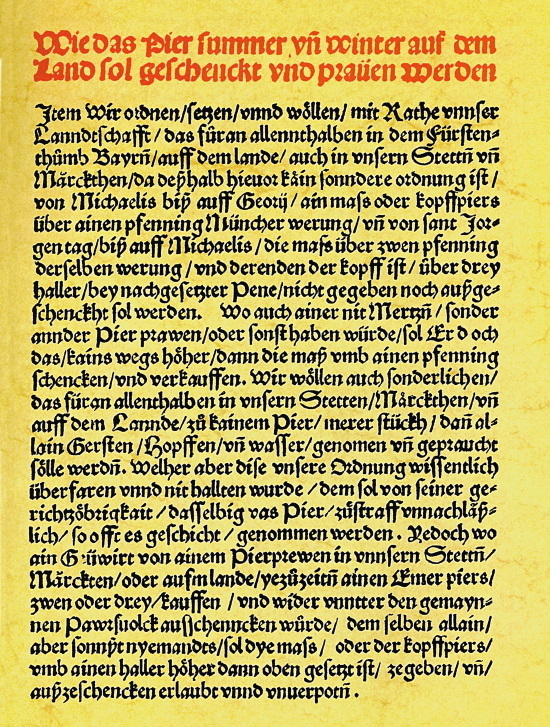 Wie das Pier summer vñ winter auf dem
Land sol geschenckt vnd praüen werden
Item Wir ordnen/setzen/vnnd wöllen/ mit Rathe vnnser
Lanndtschafft/ das füran allennthalben in dem Fürsten-
thůmb Bayrñ/auff dem lande/ auch in vnsern Stettñ vñ
Märckthen/da deßhalb hieuor kain sonndere ordnung ist/
von Michaelis biß auff Georij/ ain mass oder kopffpiers
über ainen pfenning Müncher werung/ vñ von sant Jor-
gen tag/biß auff Michaelis/ die mass über zwen pfenning
derselben werung/ vnd derenden der kopff ist/ über drey
haller/bey nachgesetzter Pene/nicht gegeben noch außge-
schenckht sol werden. Wo auch ainer nit Mertzñ/ sonder
annder Pier prawen/oder sonst haben würde/sol Er doch
das/kains wegs höher/dann die maß vmb ainen pfenning
schencken/vnd verkauffen. Wir wöllen auch sonderlichen/
das füran allenthalben in vnsern Stetten/Märckthen/vñ
auff dem Lannde/zů kainem Pier/merer stückh/ dañ al-
lain Gersten/Hopffen/vñ wasser/genomen vñ gepraucht
sölle werdñ. Welher aber dise vnsere Ordnung wissentlich
überfaren vnnd nit hallten wurde/ dem sol von seiner ge-
richtzöbrigkait/ dasselbig vas Pier/zůstraff vnnachläß-
lich/ so offt es geschicht/ genommen werden. Yedoch wo
ain Geüwirt von ainem Pierprewen in vnnsern Stettñ/
Märckten/oder aufm lande/yezůzeitñ ainen Emer piers/
zwen oder drey/kauffen / vnd wider vnntter den gemayn-
nen Pawrsuolck ausschenncken würde/ dem selben allain/
aber sonnst nyemandts/sol dye mass/ oder der kopffpiers/
vmb ainen haller höher dann oben gesetzt ist/ ze geben/ vñ/
außzeschencken erlaubt vnnd vnuerpotñ.